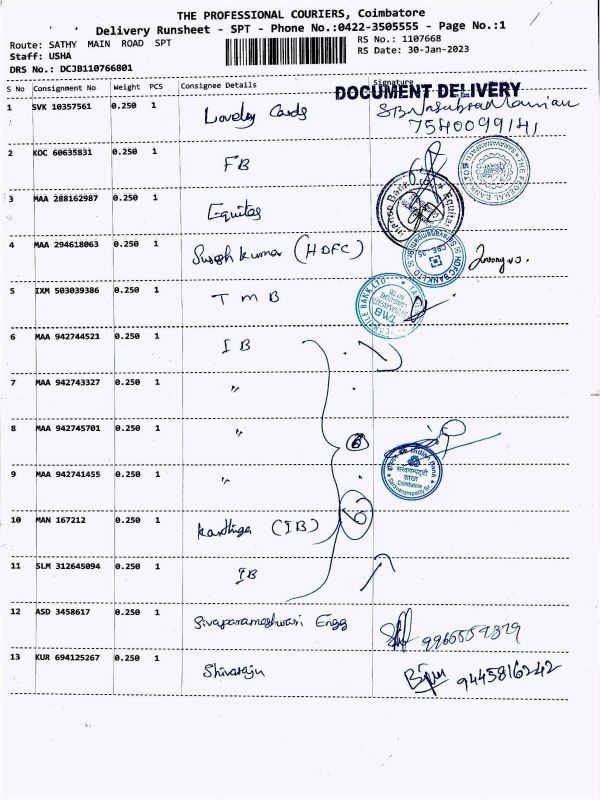 THE PROFESSIONAL COURIERS, Coimbatore
Delivery Runsheet - SPT - Phone No.:0422-3505555 - Page No.:1
Route: SATHY MAIN ROAD SPT
RS No.: 1107668
Staff: USHA
RS Date: 30-Jan-2023
DRS No.: DCJB110766801
S No Consignment No Weight PCS Consignee Details Signature
DOCUMENT DELIVERY
1 SVK 10357561 0.250 1 Lovely Cards
7540099141
2 KOC 60635831 0.250 1 FB
3 MAA 288162987 0.250 1 Equitas
4 MAA 294618063 0.250 1 Suresh kumar (HDFC)
5 IXM 503039386 0.250 1 T M B
6 MAA 942744521 0.250 1 I B
7 MAA 942743327 0.250 1 "
8 MAA 942745701 0.250 1 " 6
9 MAA 942741455 0.250 1 "
10 MAN 167212 0.250 1 Karthiga (IB) 6
11 SLM 312645094 0.250 1 IB
12 ASD 3458617 0.250 1 Sivaparameshwari Engg
13 KUR 694125267 0.250 1 Shivaraju 9445816242